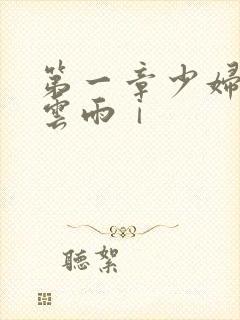 第一章少婦
雲雨｜
聽絮